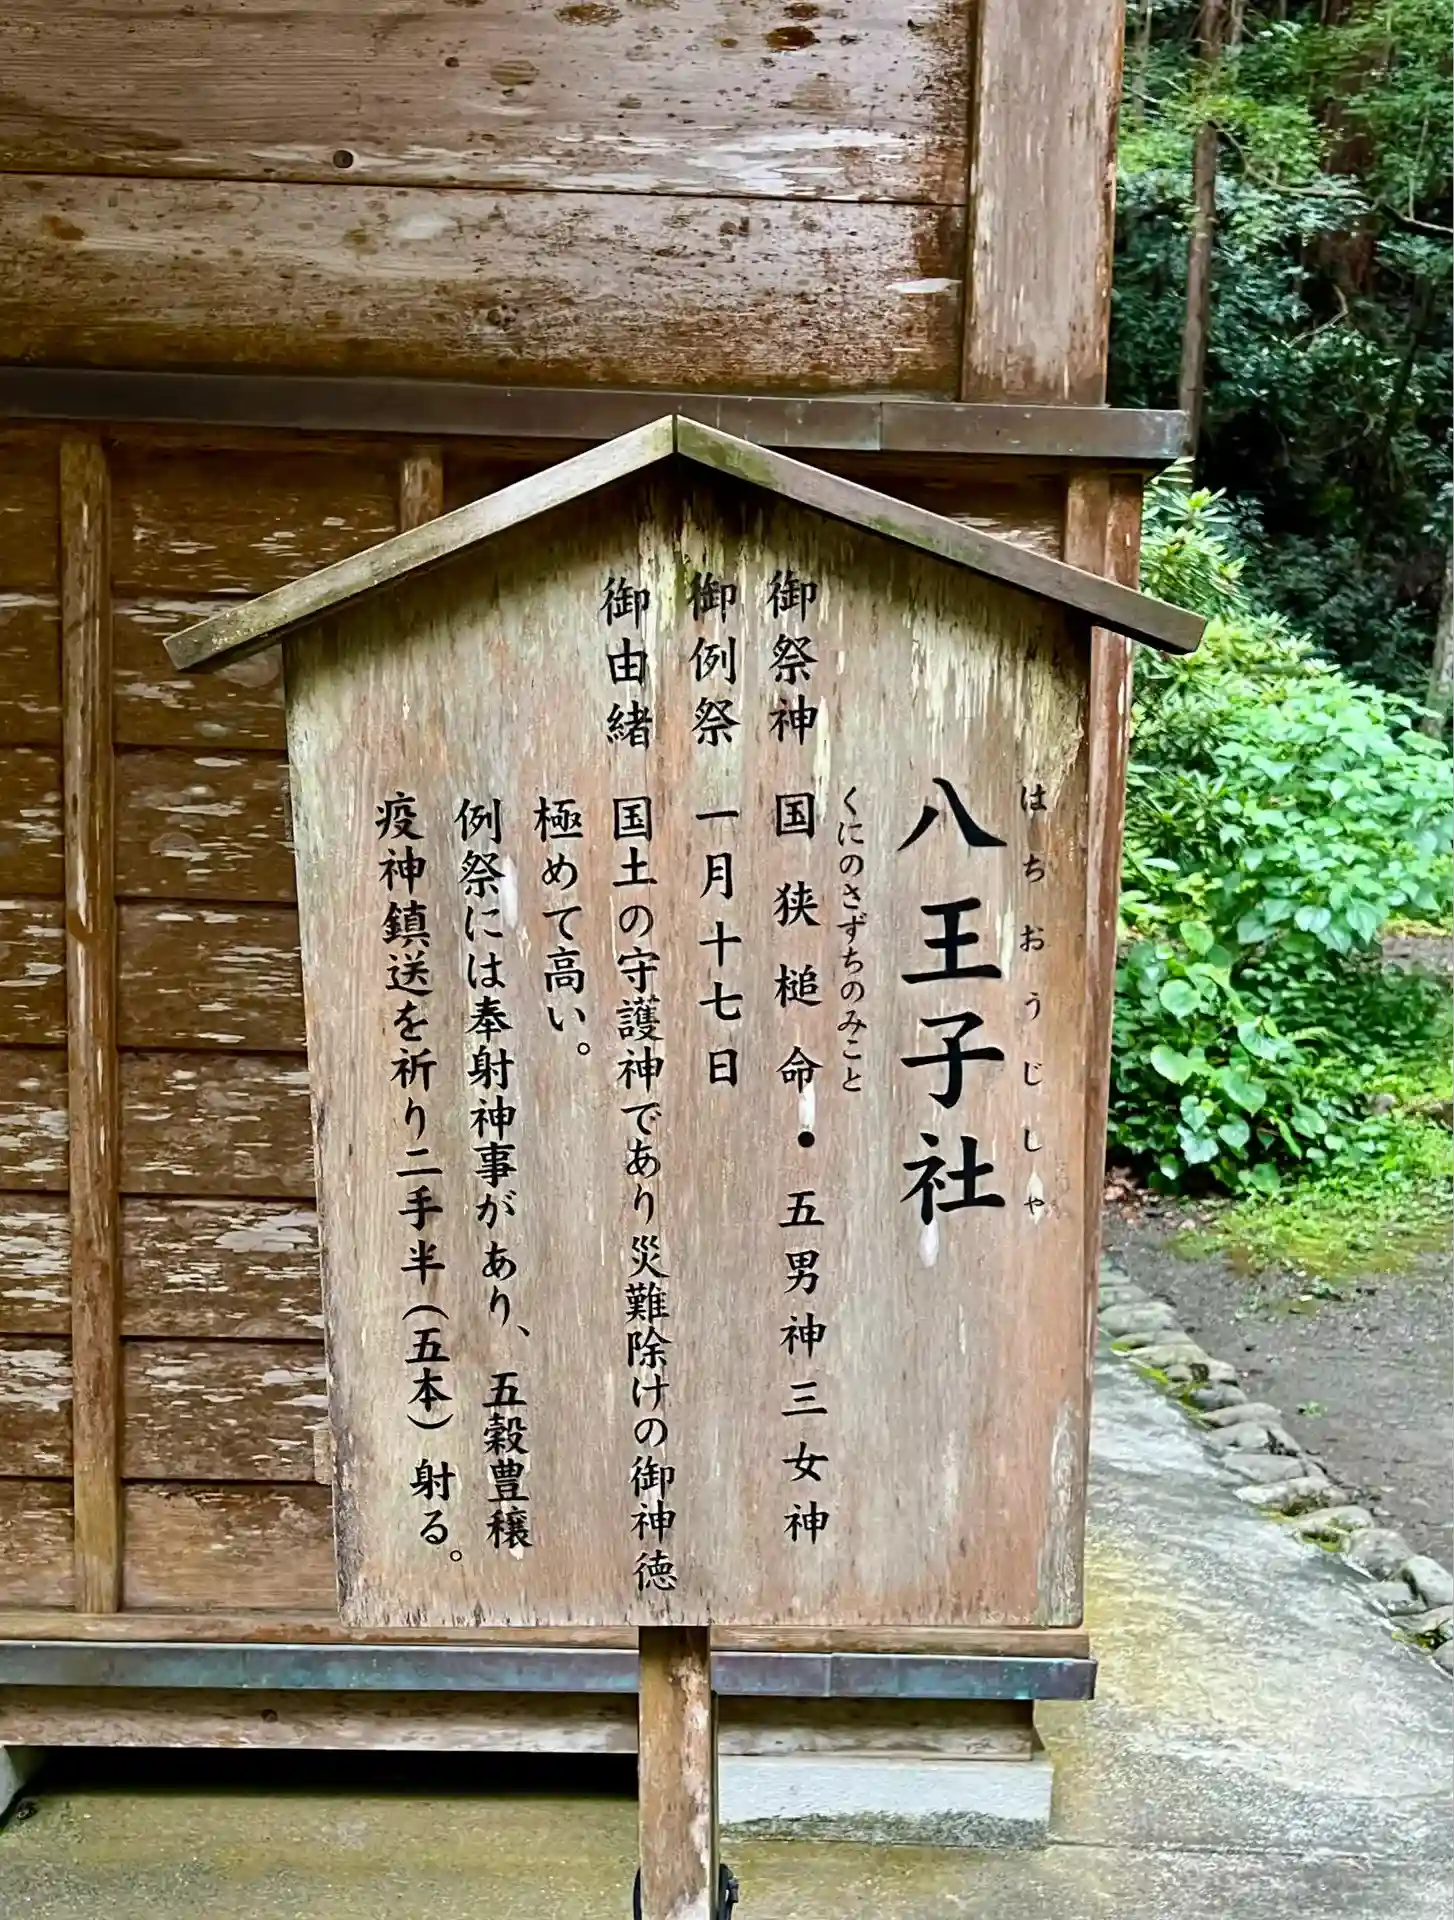 はちおうじしゃ
八王子社
くにのさずちのみこと
御祭神 国狭槌命・五男神三女神
御例祭 一月十七日
御由緒 国土の守護神であり災難除けの御神徳
極めて高い。
例祭には奉射神事があり、五穀豊穣
疫神鎮送を祈り二手半(五本)射る。